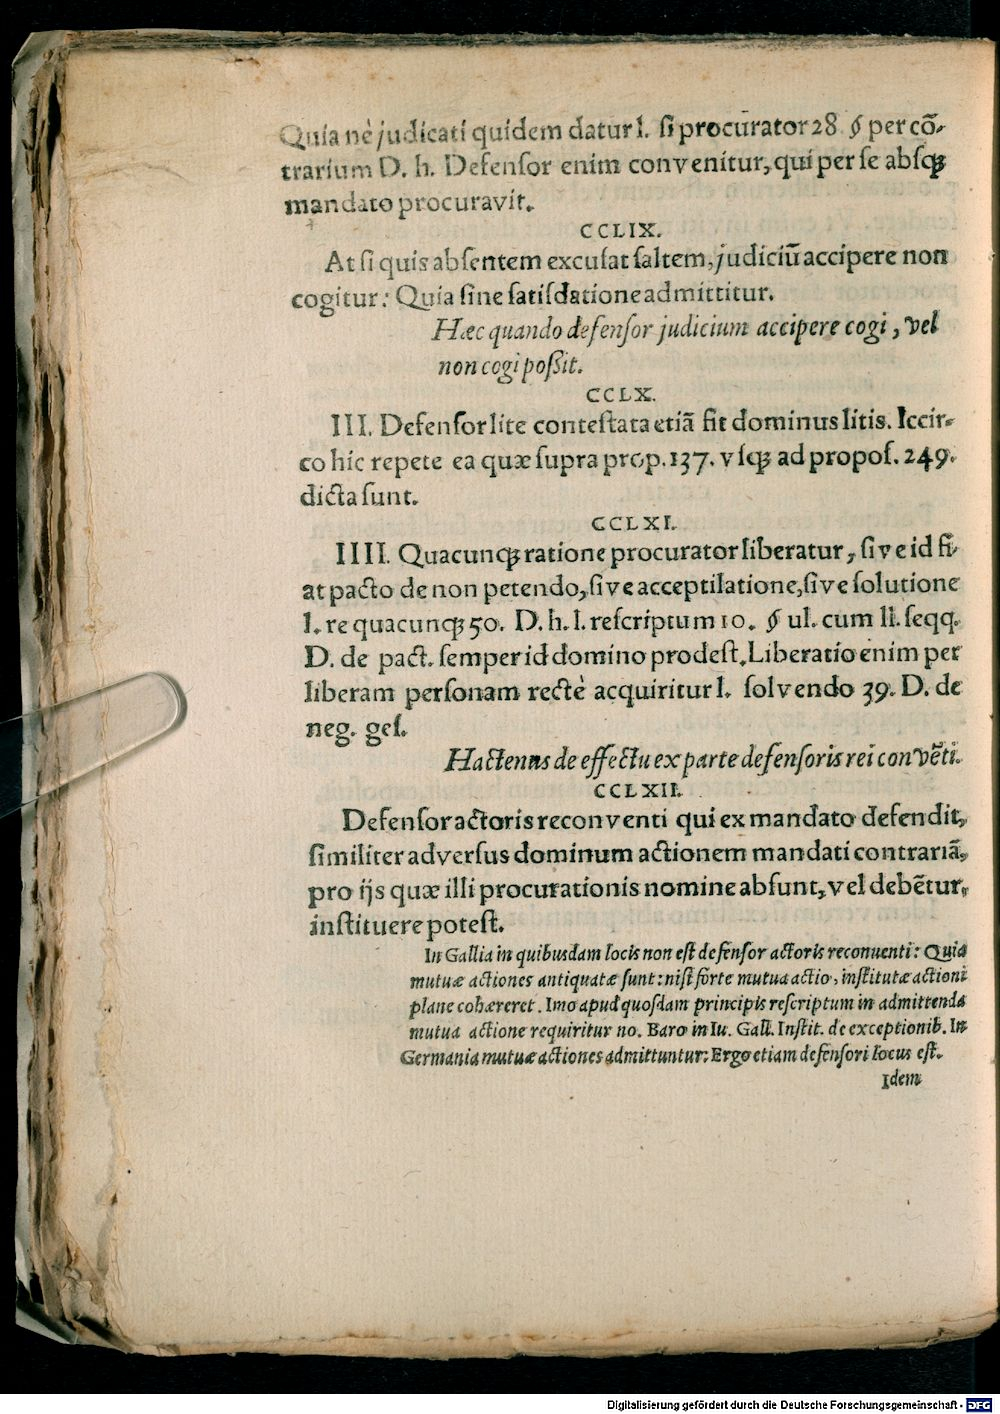 Quia nè judicati quidem datur l. ſi procurator 28 § per cō-
trarium D. h. Defenſor enim convenitur, qui per ſe abſq;
mandato procuravit.
CCLIX.
At ſi quis abſentem excuſat ſaltem, judiciū accipere non
cogitur: Quia ſine ſatiſdatione admittitur.
Hæc quando defenſor judicium accipere cogi, vel
non cogi poßit.
CCLX.
III. Defenſor lite conteſtata etiā fit dominus litis. Iccir-
co hîc repete ea quæ ſupra prop. 137. vſq; ad propoſ. 249.
dicta ſunt.
CCLXI.
IIII. Quacunq; ratione procurator liberatur, ſive id fi-
at pacto de non petendo, ſive acceptilatione, ſive ſolutione
l. re quacunq; 50. D. h. l. reſcriptum 10. § ul. cum ll. ſeqq.
D. de pact. ſemper id domino prodeſt. Liberatio enim per
liberam perſonam rectè acquiritur l. ſolvendo 39. D. de
neg. geſ.
Hactenus de effectu ex parte defenſoris rei convēti.
CCLXII.
Defenſor actoris reconventi qui ex mandato defendit,
ſimiliter adverſus dominum actionem mandati contrariā,
pro ijs quæ illi procurationis nomine abſunt, vel debētur,
inſtituere poteſt.
In Gallia in quibusdam locis non eſt defenſor actoris reconuenti: Quia
mutuæ actiones antiquatæ ſunt: niſt forte mutua actio, inſtitutæ actioni
plane cohæreret. Imo apud quoſdam principis reſcriptum in admittenda
mutua actione requiritur no. Baro in Iu. Gall. Inſtit. de exceptionib. In
Germania mutuæ actiones admittuntur: Ergo etiam defenſori locus eſt.
Idem
Digitalisierung gefördert durch die Deutsche Forschungsgemeinschaft - DFG